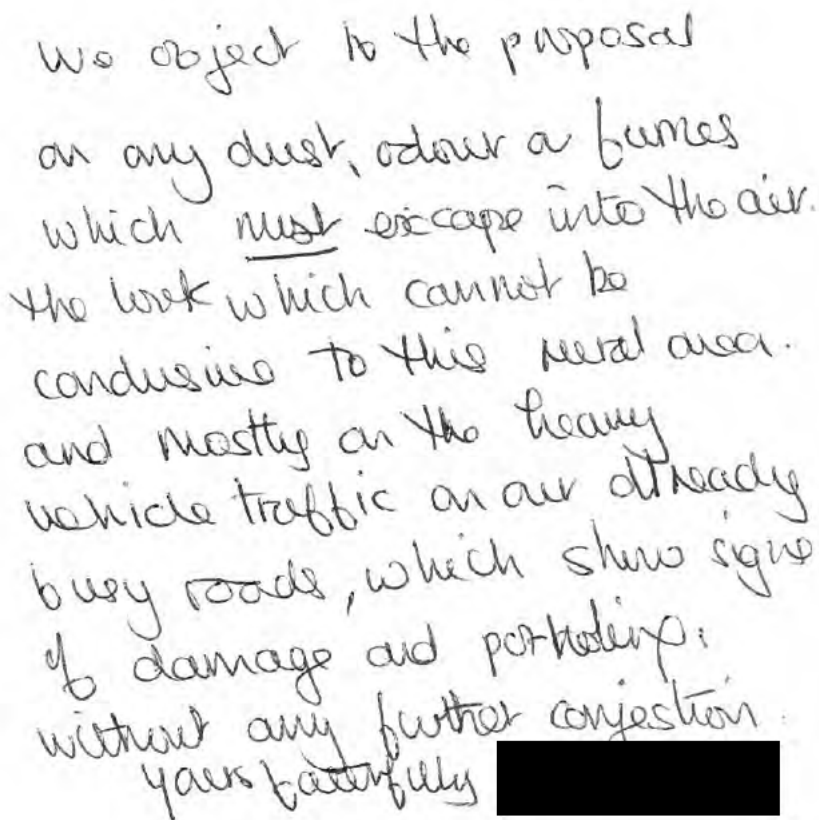 We object to the proposal
on any dust, odour or fumes
which must escape into the air.
the look which cannot be
condusive to this rural area.
and mostly on the heavy
vehicle traffic on our already
busy roads, which show signs
of damage and potholing.
without any further conjestion.
yours faithfully